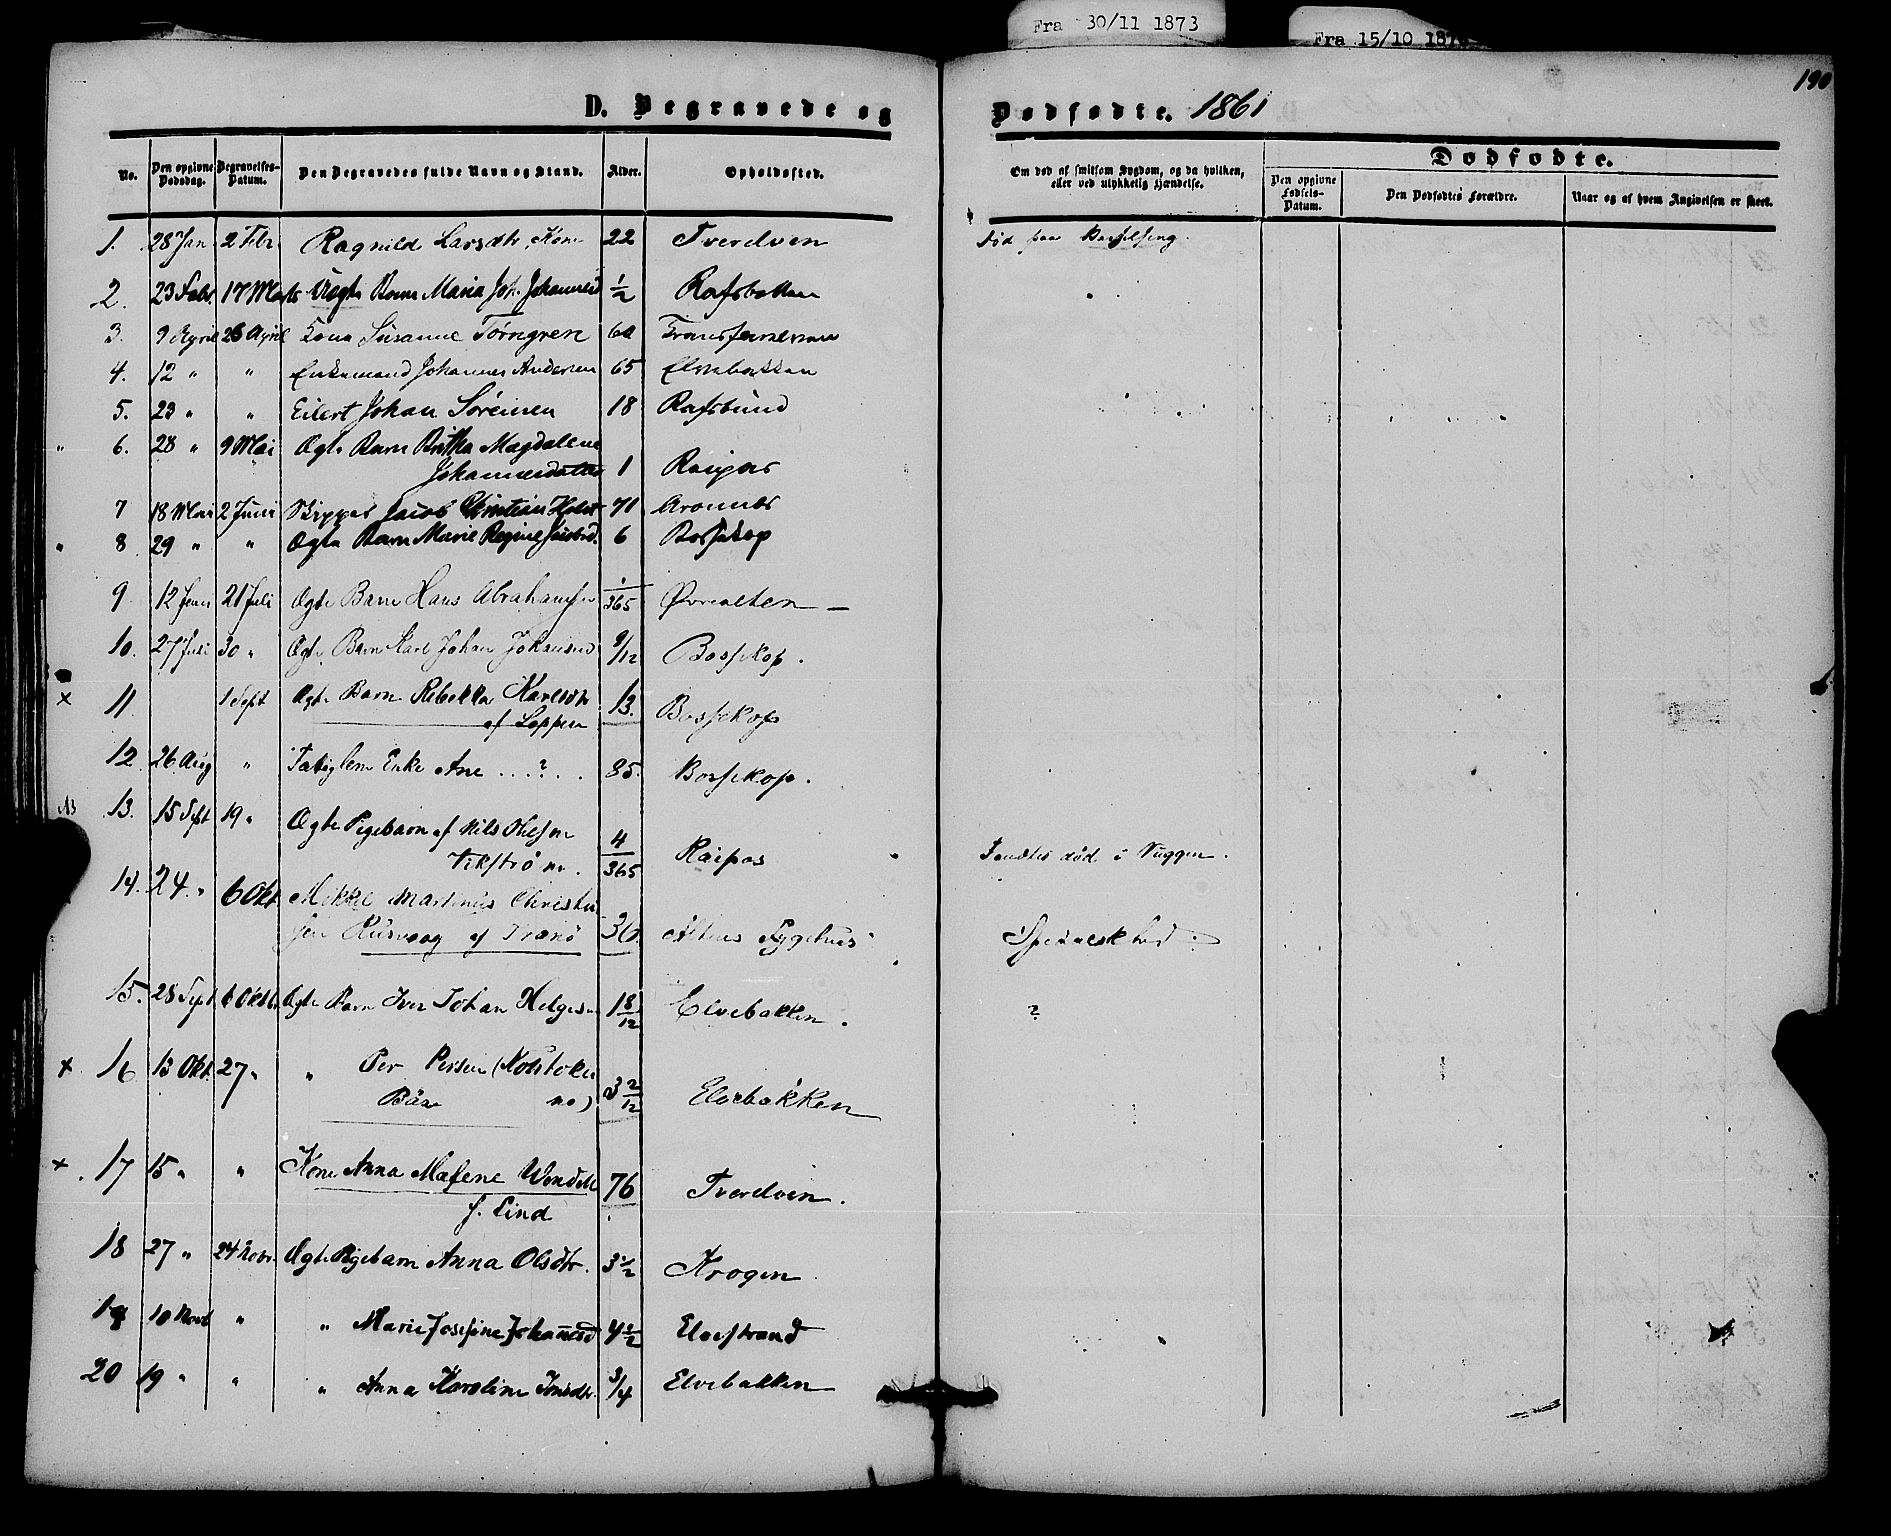 Fra 30/11 1873
Fra 15/10 187
190
D. Begravede og
Dødfødte. 1861
No. Den opgivne Dødsdag. Begravelses-Datum. Den Begravedes fulde Navn og Stand. Alder. Opholdssted.
Om død af smitsom Sygdom, og da hvilken, eller ved ulykkelig Hændelse.
Dødfødte.
Den opgivne Fødsels-Datum. Den Dødfødtes Forældre. Naar og af hvem Angivelsen er skeet.
1. 28 Jan 2 Febr Ragnild Larsdtr, Kone 22 Tverelven død paa Barselseng.
2. 23 Febr 17 Marts Uægte Barn Maria Johannesd 1/2 Rafsbotten
3. 9 April 26 April Kone Susanne Törngren 60
4. 12 " " Enkemand Johannes Andersen 65 Elvebakken
5. 23 " " Eilert Johan Sörensen 18 Rafsbund
" 6. 28 " 9 Mai Ægte Barn Britha Magdalene
Johannesdatter 1 Raipas
7 18 Mai 2 Juni Skipper Jacob Christian Holst 71 Aronnes
" 8 29 " " Ægte Barn Marie Regine Jacobsd. 6 Bossekop
9 12 Juni 21 Juli Ægte Barn Hans Abrahamsen 1/365 Øvrealten
10. 27 Juli 30 " Ægte Barn Karl Johan 9/12 Bossekop.
x 11 1 Sept Ægte Barn Rebekka Karlsdtr
af Loppen 13. Bossekop
12. 26 Aug " Fattiglem Enke Ane ...?.. 85. Bossekop.
NB 13. 15 Sept 19 " Ægte Pigebarn af Nils Olsen
Vikström. 4/365 Raipas Fandtes død i Vuggen.
14. 24 " 6 Okt Mikkel Martinus Christen
sen Rusvaag af Tranö 36. Altens Sygehus Spedalskhed
15. 28 Sept 6 Oktbr Ægte Barn Iver Johan Helgesen 18/12 Elvebakken. ?
x 16 13 Okt. 27 " " Per Persen (
no) 3 2/12 Elvebakken
x 17 15 " " Kone Anna Malene
f. Lind 76 Tverelven.
18 27 " 24 Novr. Ægte Pigebarn Anna Olsdtr. 3 1/2 Krogen
19 10 Novb " " Marie Josefine Johannesd 4 1/2 Elvestrand
20 19 " " " Anna Karoline 3/4 Elvebakken